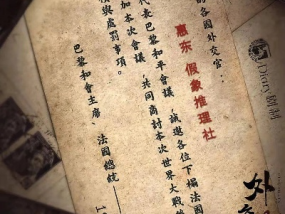 的各国外交官：
代表巴黎和平會議，誠邀各位下榻法國
加本次會議，共同商討本次世界大戰的
模與處罰事項。
巴黎和會主席、法國總統——
惠东 假象推理社
Diary劇料
外